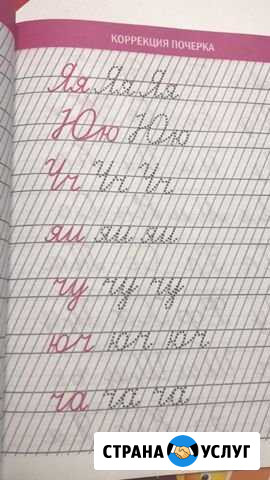 КОРРЕКЦИЯ ПОЧЕРКА
Яя Яя Яя
Юю Юю
Чч Чч Чч
ям ям ям
чу чу чу
юч юч юч
ча ча ча
СТРАНА УСЛУГ